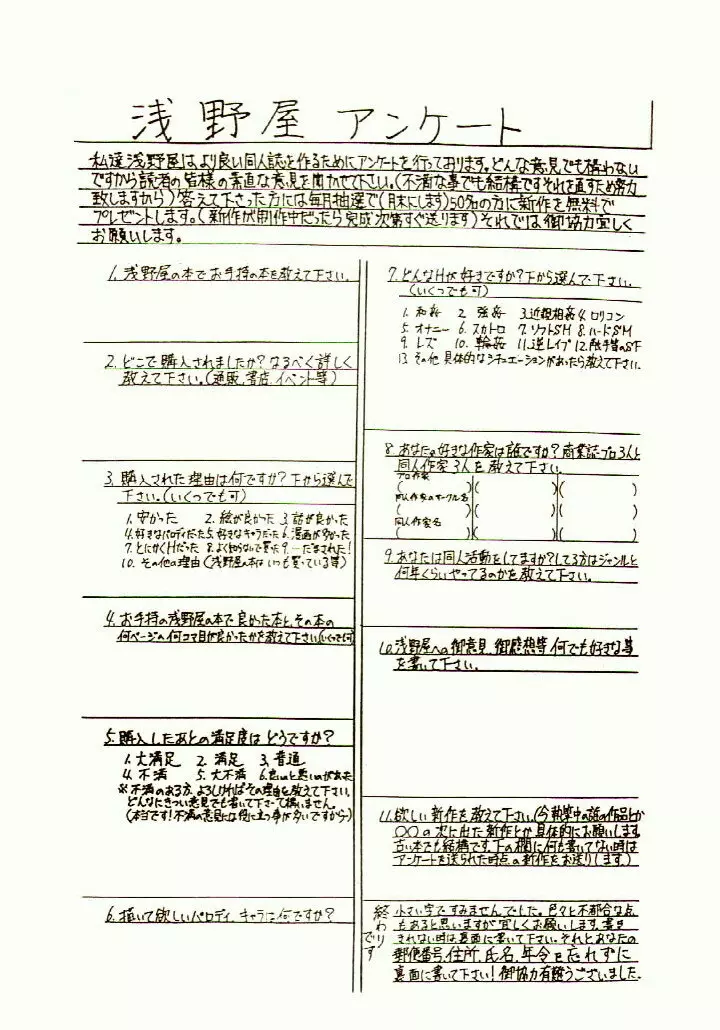 浅野屋 アンケート
私達浅野屋は、より良い同人誌を作るためにアンケートを行っております。どんな意見でも構わない
ですから読者の皆様の素直な意見を聞かせて下さい。(不満な事でも結構ですそれを直すため努力
致しますから)答えて下さった方には毎月抽選で(月末にします)50%の方に新作を無料で
プレゼントします。(新作が制作中だったら完成次第すぐ送ります)それでは御協力宜しく
お願いします。
1. 浅野屋の本でお手持の本を教えて下さい。
2. どこで購入されましたか?なるべく詳しく
教えて下さい。(通販、書店、イベント等)
3. 購入された理由は何ですか?下から選んで
下さい。(いくつでも可)
1. 安かった 2. 絵が良かった 3. 話が良かった
4. 好きなパロディだった 5. 好きなキャラだった 6. 漫画が多かった
7. とにかくHだった 8. よく知らないで買った 9. 一だまされた!
10. その他の理由(浅野屋の本はいつも買っている等)
4. お手持の浅野屋の本で良かった本と、その本の
何ページの何コマ目が良かったかを教えて下さい(いくつでも可)
5. 購入したあとの満足度はどうですか?
1. 大満足 2. 満足 3. 普通
4. 不満 5. 大不満 6. 良いのと悪いのがあった
※不満のある方、よろしければその理由を教えて下さい。
どんなにきつい意見でも書いて下さって構いません。
(本当です!不満の意見には役に立つ事が多いですから)
6. 描いて欲しいパロディ、キャラは何ですか?
7. どんなHが好きですか?下から選んで下さい。
(いくつでも可)
1. 和姦 2. 強姦 3. 近親相姦 4. ロリコン
5. オナニー 6. スカトロ 7. ソフトSM 8. ハードSM
9. レズ 10. 輪姦 11. 逆レイプ 12. 触手等のSF
13. その他 具体的なシチュエーションがあったら教えて下さい。
8. あなたの好きな作家は誰ですか?商業誌・プロ3人と
同人作家3人を教えて下さい。
プロ作家
( )( )( )
同人作家のサークル名
( )( )( )
同人作家名
( )( )( )
9. あなたは同人活動をしてますか?してる方はジャンルと
何年くらいやってるのかを教えて下さい。
10. 浅野屋への御意見、御感想等何でも好きな事
を書いて下さい。
11. 欲しい新作を教えて下さい。(今執筆中の話の作品とか
〇〇の次に出た新作とか具体的にお願いします。
古い本でも結構です。下の欄に何も書いてない時は
アンケートを送られた時点の新作をお送りします。)
小さい字ですみませんでした。色々と不都合な点
もあると思いますが宜しくお願いします。書き
きれない時は、裏面に書いて下さい。それとあなたの
郵便番号、住所、氏名、年令を忘れずに
裏面に書いて下さい!御協力有難うございました。
終わりです